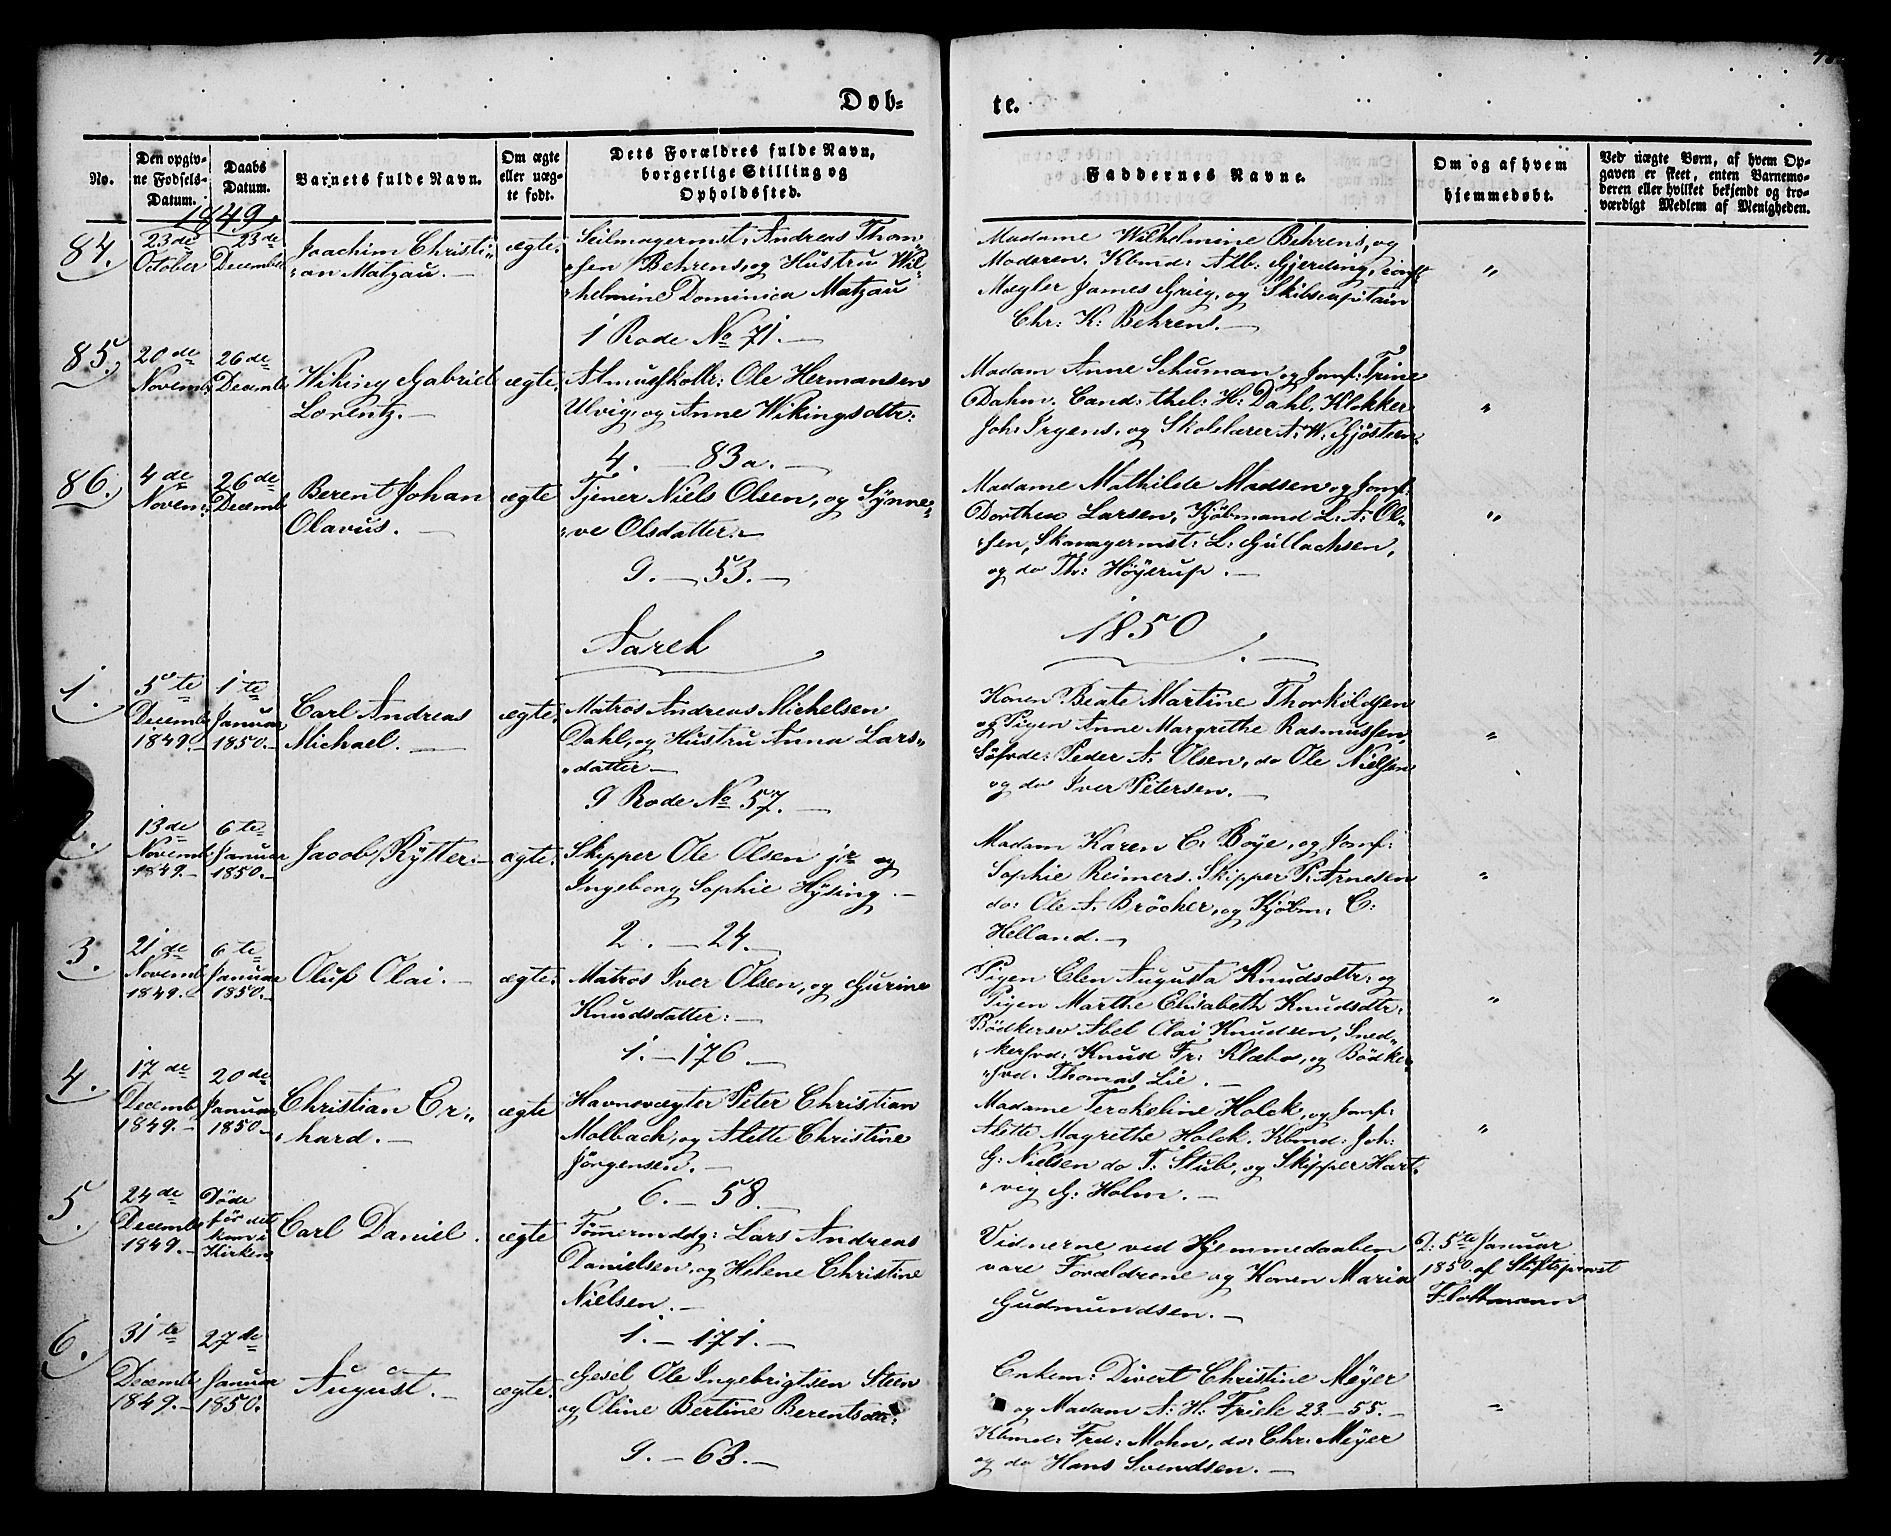 Døb-
te.
No.
Den opgiv-
ne Fødsels-
Datum.
Daabs
Datum.
Barnets fulde Navn.
Om ægte
eller uæg-
te født.
Dets Forældres fulde Navn,
borgerlige Stilling og
Opholdssted.
Faddernes Navne.
Om og af hvem
hjemmedøbt.
Ved uægte Børn, af hvem Op-
gaven er skeet, enten Barnemo-
deren eller hvilket bekjendt og tro-
værdigt Medlem af Menigheden.
1849
84.
23de
October
23de
Decembr
Joachim Christi-
an Matzau.
ægte.
Seilmagermst. Andreas Thom
sen Behrens, og Hustru Wil-
helmine Dominica Matzau
1 Rode No 71.
Madame Wilhelmine Behrens, og
Moderen. Kbmd: Alb: Gjerding,
Mægler James Grieg, og Skibscapitain
Chr: K: Behrens.
"
85.
20de
Novemb:
26de
Decemb:
Wiking Gabriel
Lorentz.
ægte.
Almuskolk: Ole Hermansen
Ulvig, og Anne Wikingsdtr:
4. - 83a.
Madam Anne Schuman og Jomf: Trine
Dahm. Cand: thel: H: Dahl, Klokker
Joh: Irgens, og Skolelærer A: W: Gjøstien.
"
86.
4de
Novem:
26de
Decemb:
Berent Johan
Olavus.
ægte
Tjener Niels Olsen, og Synne-
ve Olsdatter.
9. - 53.
Madame Mathilde Madsen og Jomf:
Dorthea Larsen, Kjøbmand L: A: Ol-
sen, Skomagermst: L: Gullachsen,
og do Th: Høyerup.
"
Aaret
1850
1.
5te
Decemb:
1849.
1te
Januar
1850.
Carl Andreas
Michael.
ægte.
Matros Andreas Michelsen
Dahl, og Hustru Anna Lars-
datter
9 Rode No 57.
Konen Beate Martine Thorkildsen
og Pigen Anne Margrethe Rasmussen,
Peder A. Olsen, do Ole Nielsen
og do Iver Petersen.
"
2.
13de
Novemb:
1849.
6te
Januar
1850.
Jacob Rytter.
ægte.
Skipper Ole Olsen jr og
Ingeborg Sophie Hysing.
2. - 24.
Madam Karen C: Bøye, og Jomf:
Sophie Reimers. Skipper P. Arnesen
do: Ole A. Brøcher, og Kjøbm: C:
Helland.
"
3.
21de
Novemb:
1849.
6te
Januar
1850.
Oluf Olai.
ægte.
Matros Iver Olsen, og Gurine
Knudsdatter:
1. - 176.
Pigen Elen Augusta Knudsdtr: og
Pigen Marthe Elisabeth Knudsdtr:
Bødkersv Abel Olai Knudsen, Sned-
kersvd: Knud Fr: Klæbo, og Bødke-
svd: Thomas Lie.
"
4.
17de
Decemb:
1849.
20de
Januar
1850.
Christian Er-
hard.
ægte
Havnevægter Peter Christian
Molbach, og Alette Christine
Jørgensen.
6. - 58.
Madame Terckeline Holck, og Jomf:
Alette Magrethe Holck. Kbmd: Joh:
G: Nielsen do T: Stub, og Skipper Hart-
vig G: Holm.
"
5.
24de
Decemb:
1849.
Døde
før det
kom i
Kirken
Carl Daniel.
ægte
Tømmermddg: Lars Andreas
Danielsen, og Helene Christine
Nielsen.
1. - 171.
Vidnerne ved Hjemmedaaben
vare Forældrene og Konen Maria
Gudmundsen.
D: 5te Januar
1850. af Stiftsprovst
Flottmann
6.
31te
Decemb:
1849.
27de
Januar
1850.
August.
ægte.
Gesel Ole Ingebrigtsen Steen
og Oline Bertine Berentsdtr:
9. - 63.
Enkem: Divert Christine Meyer
og Madam A: H: Friele 23 - 55.
Kbmd: Fred: Mohn, do: Chr: Meyer
og do Hans Svendsen.
"